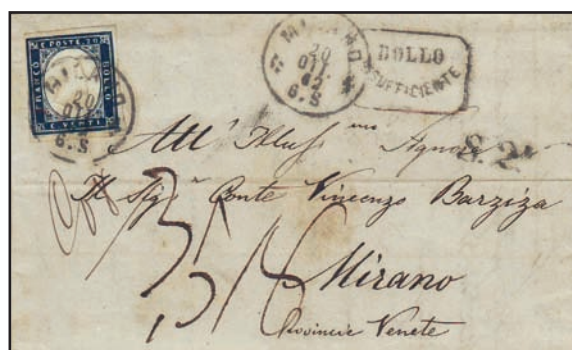 C. POSTE 20
FRANCO
BOLLO
C. VENTI
MILANO
20
OTT
62
6.S
MILANO
20
OTT
62
6.S
BOLLO
INSUFFICIENTE
S. 2ª
All' Illus mo Signore
Il Sigr Conte Vincenzo Barziza
Mirano
Provincie Venete